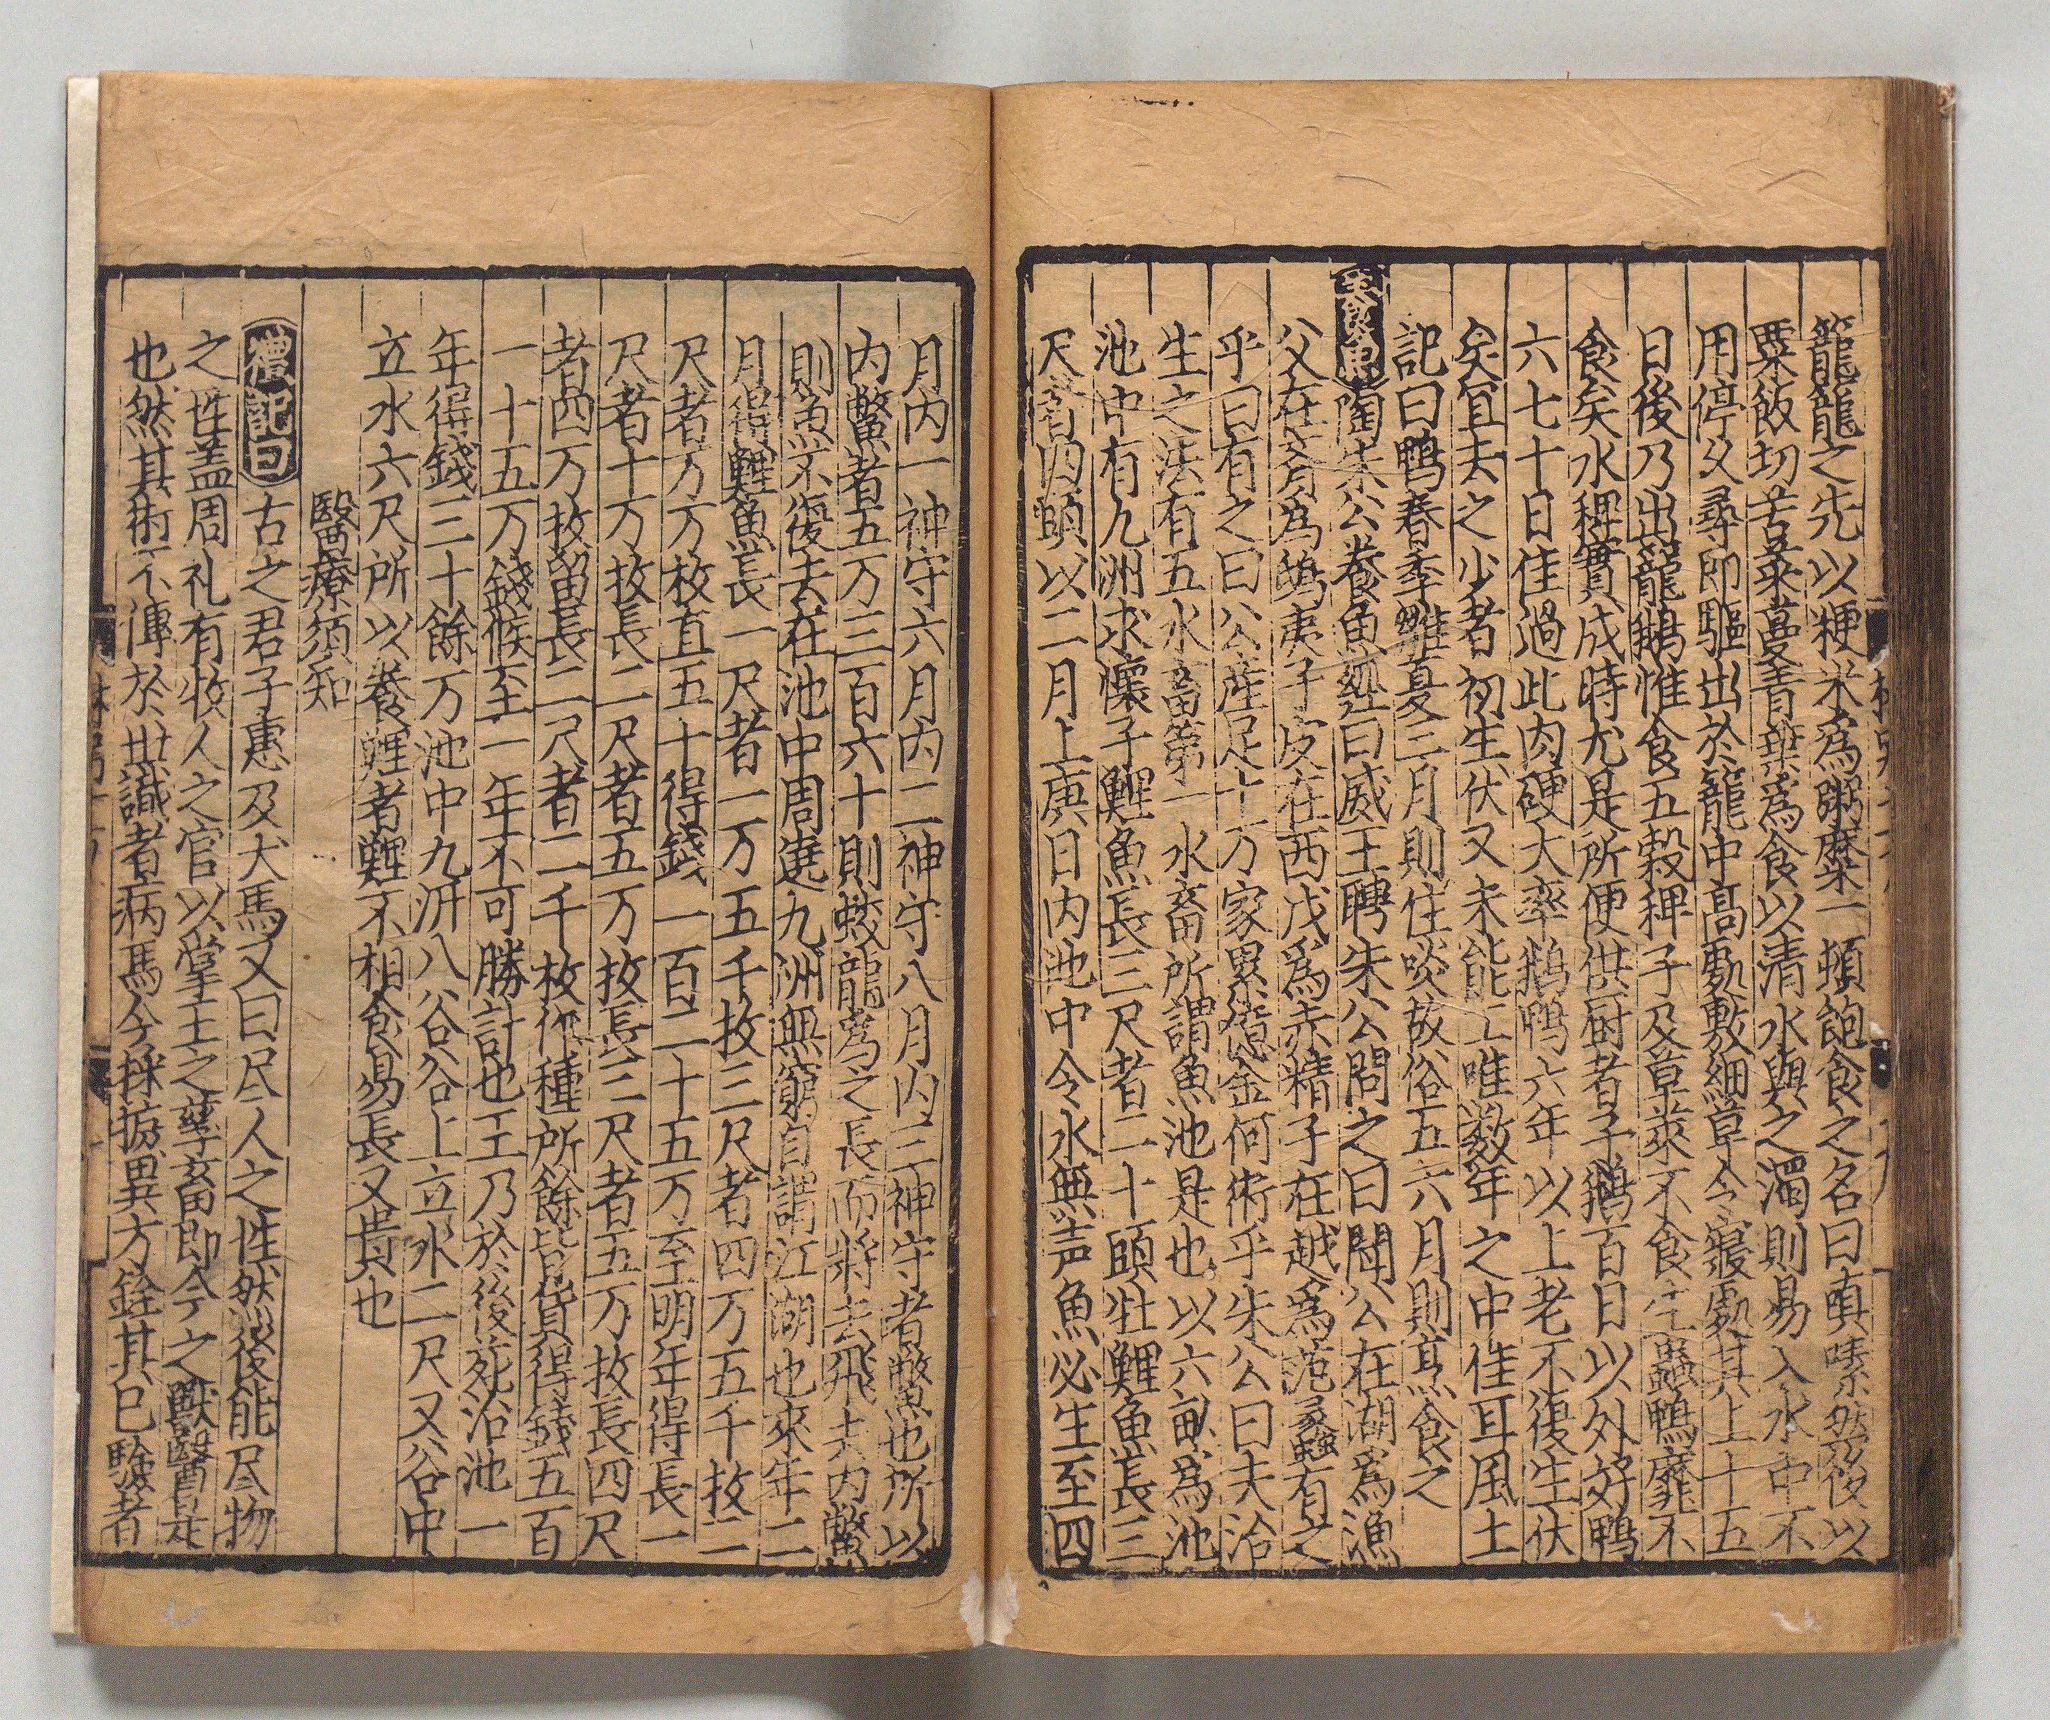 籠籠之先以粳米為粥糜一頓飽食之名曰嗔嗉然後以
粟飯切苦菜蔓菁葉為食以清水與之濁則易入水中不
用停久尋即驅出於籠中高處敷細草令寢處其上十五
日後乃出籠鵝惟食五穀稗子及草菜不食生蟲鴨靡不
食矣水稗實成時尤是所便供厨者子鵝百日以外好鴨
六七十日佳過此肉硬大率鵝鴨六年以上老不復生伏
矣宜去之少者初生伏又未能工唯數年之中佳耳風土
記曰鴨春季雛夏三月則任啖故俗五六月則烹食之
養魚 陶朱公養魚經曰威王聘朱公問之曰聞公在湖為漁
父在齊為鴟夷子皮在西戎為赤精子在越為范蠡有之
乎曰有之曰公產足千万家累億金何術乎朱公曰夫治
生之法有五水畜第一水畜所謂魚池是也以六畝為池
池中有九洲求懷子鯉魚長三尺者二十頭牡鯉魚長三
尺者四頭以二月上庚日內池中令水無声魚必生至四
月內一神守六月內二神守八月內三神守者鱉也所以
內鱉者五万三百六十則蛟龍為之長而將去飛去內鱉
則魚不復去在池中周遶九洲無窮自謂江湖也來年二
月得鯉魚長一尺者一万五千枚三尺者四万五千枚二
尺者万万枚直五十得錢一百二十五万至明年得長一
尺者十万枚長二尺者五万枚長三尺者五万枚長四尺
者四万枚留長二尺者二千枚作種所餘皆貨得錢五百
一十五万錢候至一年不可勝計也王乃於後苑治池一
年得錢三十餘万池中九洲八谷谷上立水二尺又谷中
立水六尺所以養鯉者鯉不相食易長又貴也
醫療須知
禮記曰 古之君子惠及犬馬又曰尽人之性然後能尽物
之性盖周礼有牧人之官以掌王之孳畜即今之獸醫是
也然其術不傳於世識者病焉今採摭異方銓其已驗者